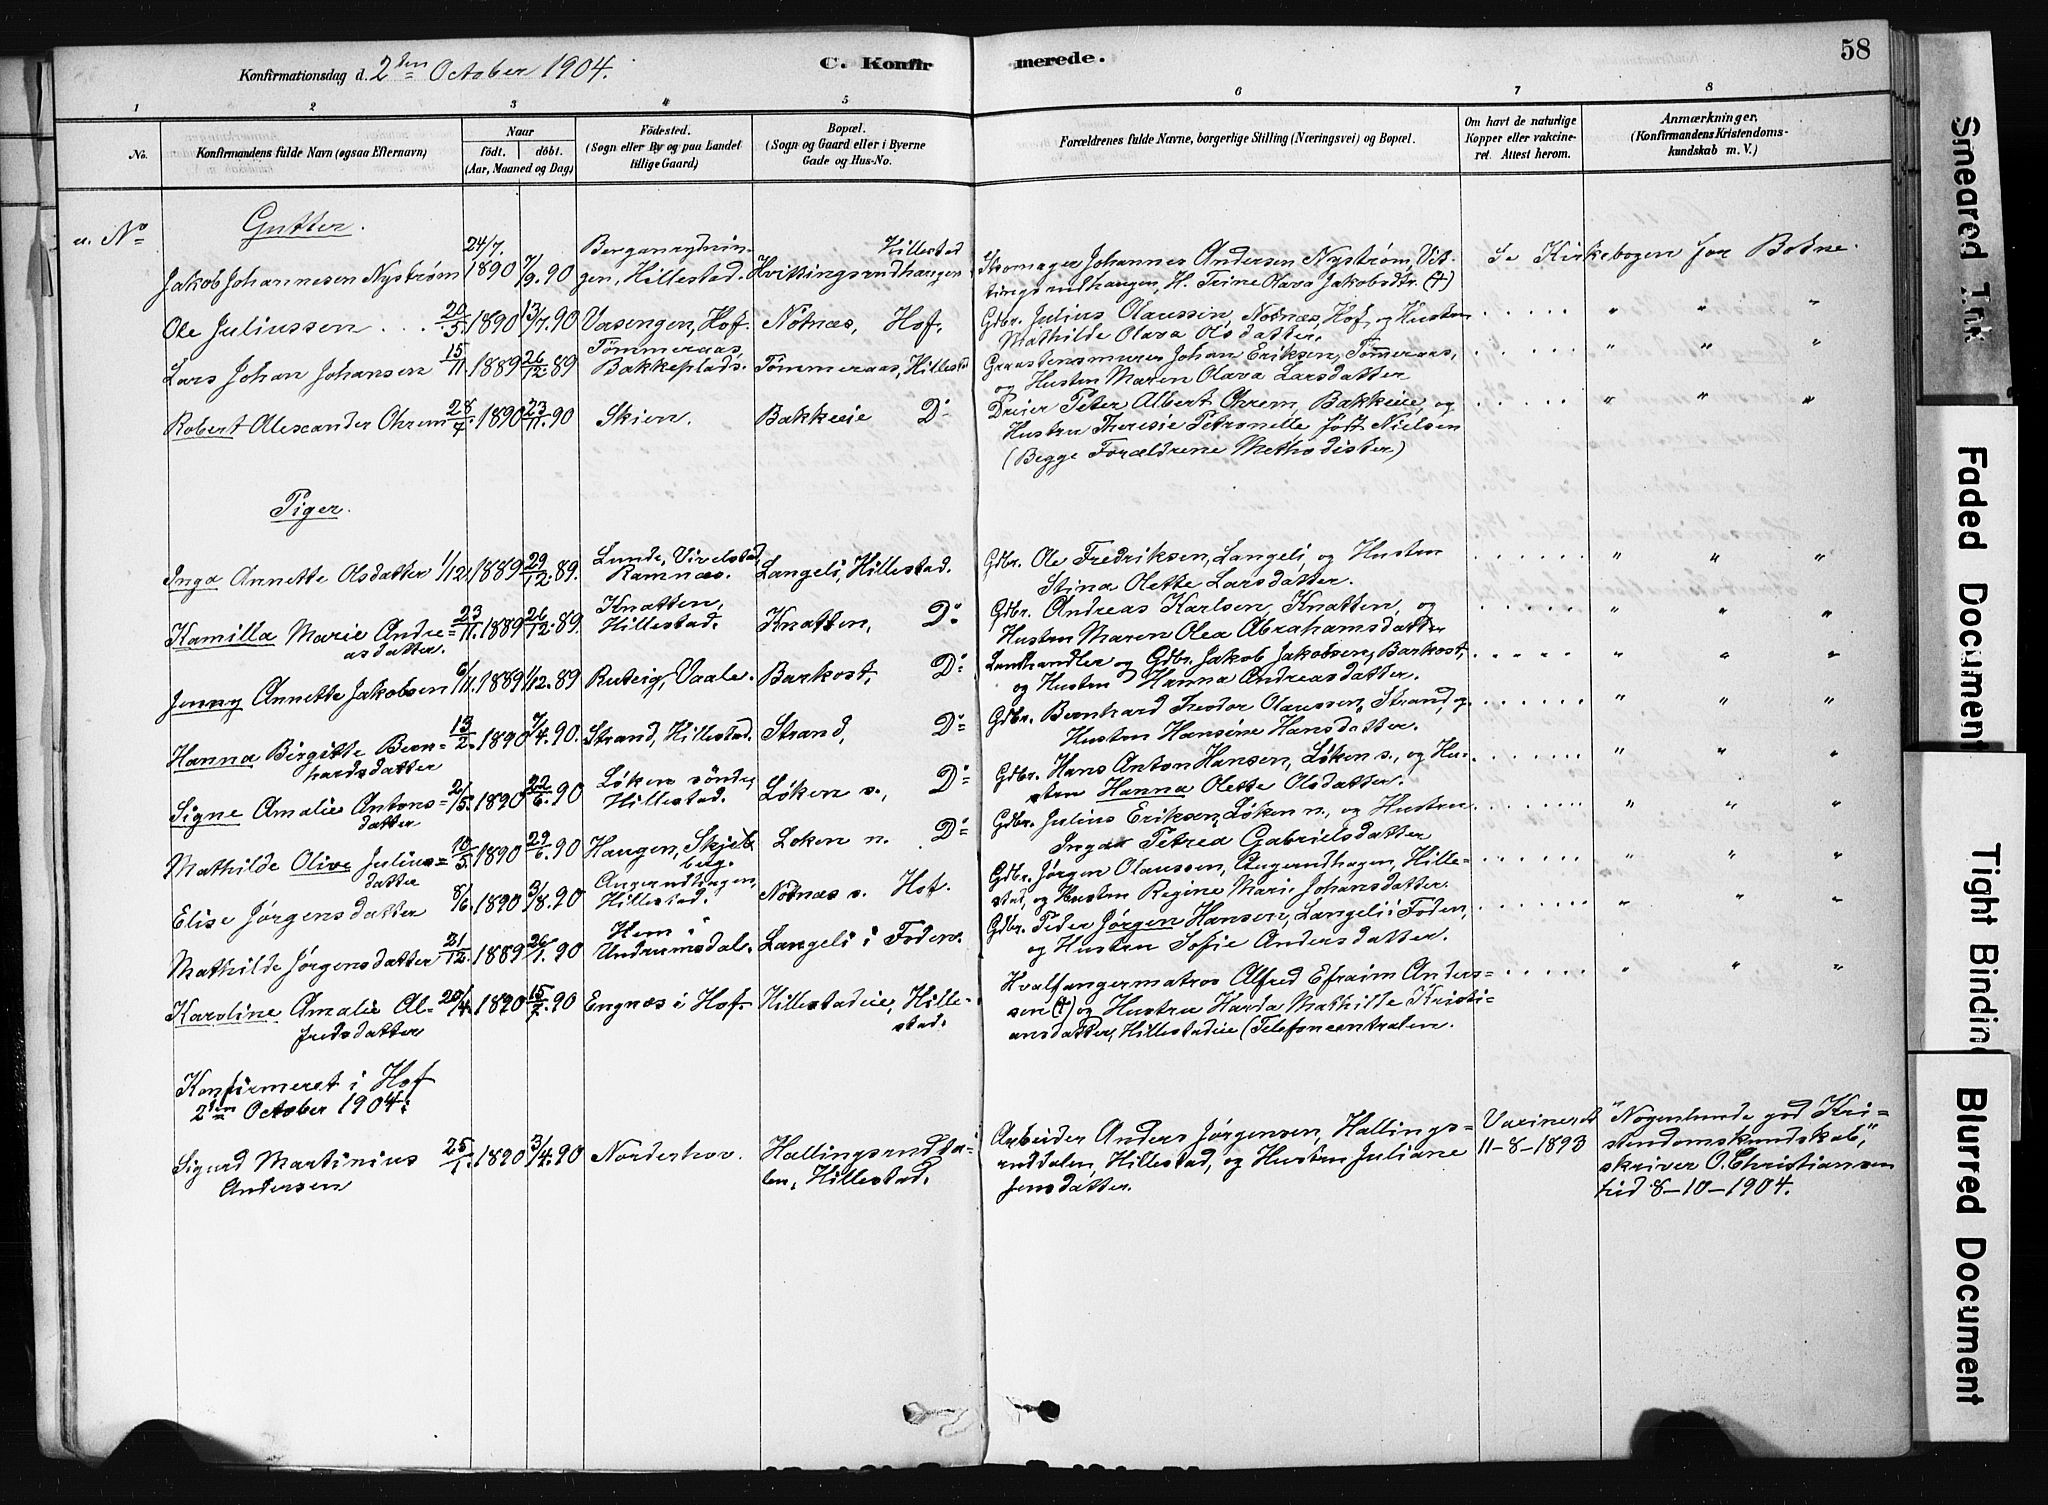 58
Konfirmationsdag d. 2den October 1904.
C. Konfirmerede.
1 2 3 4 5 6 7 8
No.
Konfirmandens fulde Navn (ogsaa Efternavn)
Naar
födt. döbt.
(Aar, Maaned og Dag)
Födested.
(Sogn eller By og paa Landet
tillige Gaard)
Bopæl.
(Sogn og Gaard eller i Byerne
Gade og Hus-No.
Forældrenes fulde Navne, borgerlige Stilling (Næringsvei) og Bopæl.
Om havt de naturlige
Kopper eller vakcine-
ret. Attest herom.
Anmærkninger,
(Konfirmandens Kristendoms-
kundskab m. V.)
u. No
Gutter.
Jakob Johannesen Nystrøm 24/7. 1890 7/9.90 Berganrydnin-
gen, Hillestad. Hvittingsrudhaugen Hillestad
Skomager Johannes Andersen Nystrøm, Vit-
tingsrudhaugen, H. Trine Olava Jakobsdtr. (†)
Se Kirkebogen for Botne.
Ole Juliussen . . . 20/5. 1890 13/7.90 Vasengen, Hof. Nötnæs, Hof.
Gdbr. Julius Olaussen, Nötnæs, Hof, og Husten
Mathilde Olava Olsdatter.
. . . . . . " " "
Lars Johan Johansen 15/11. 1889 26/12.89 Tömmeraas
Bakkeplads. Tömmeraas, Hillestad
Graastensmurer Johan Eriksen, Tömmeraas,
og Husten Maren Olava Larsdatter
. . . . . . " " "
Robert Alexander Ohrem 28/7. 1890 23/11.90 Skien. Bakkeeie Do
Dreier Peter Albert Ohrem, Bakkeeie, og
Hustru Theresie Petronelle født Nielsen
(Begge Forældrene Methodister.)
. . . . . . " " "
Piger.
Inga Annette Olsdatter 1/12. 1889 29/12.89. Lunde, Vivelstad
Ramnæs. Langeli, Hillestad.
Gdbr. Ole Fredriksen, Langeli, og Husten
Stina Olette Larsdatter.
. . . . . . " " "
Kamilla Marie Andre-
asdatter. 23/11. 1889 26/12.89. Knatten,
Hillestad. Knatten, Do
Gdbr. Andreas Karlsen, Knatten, og
Husten Maren Olea Abrahamsdatter
. . . . . . " " "
Jenny Annette Jakobsen 6/11. 1889 1/12.89 Ruteig, Vaale. Barkost, Do
Landhandler og Gdbr. Jakob Jakobsen, Barkost,
og Husten Hanna Andreasdatter.
. . . . . . " " "
Hanna Birgitte Bern-
hardsdatter 13/2. 1890 7/4.90. Strand, Hillestad. Strand, Do
Gdbr. Bernhard Theodor Olaussen, Strand, og
Husten Hansine Hansdatter.
. . . . . . " " "
Signe Amalie Antons-
datter 2/5. 1890 22/6.90 Løken søndre,
Hillestad. Løken s., Do
Gdbr. Hans Anton Hansen, Løken s., og Hu-
sten Hanna Olette Olsdatter.
. . . . . . " " "
Mathilde Olive Julius-
datter 10/5. 1890 29/6.90 Haugen, Skjeberg. Loken n. Do
Gdbr. Julius Eriksen, Løken n., og Hustru
Inga Petrea Gabrielsdatter
. . . . . . " " "
Elise Jørgensdatter 8/6. 1890 3/8.90 Angerudhagen,
Hillestad. Nötnæs s. Hof.
Gdbr. Jørgen Olaussen, Angerudhagen, Hille-
stad, og Husten Regine Marie Johansdatter.
. . . . . . " " "
Mathilde Jørgensdatter 21/12. 1889 26/1.90 Hem i
Undrumsdal. Langeli i Foden.
Gdbr. Peder Jørgen Hansen, Langeli i Foden,
og Hustru Sofie Andersdatter.
. . . . . . " " "
Karoline Amalie Al-
fredsdatter 20/4. 1890 15/7.90 Engnæs i Hof. Hillestadeie, Hille-
stad.
Hvalfangermatros Alfred Efraim Anders-
sen (†) og Hustru Harda Mathilde Kristi-
ansdatter, Hillestadeie (Telefoncentralen.
. . . . . . " " "
Konfirmeret i Hof
2den October 1904:
Sigurd Martinius
Andersen 25/1. 1890 3/4.90 Norderhov. Hallingsrudda-
len, Hillestad.
Arbeider Anders Jørgensen, Hallings-
ruddalen, Hillestad, og Husten Juliane
Jensdatter.
Vacineret
11-8-1893
"Nogenlunde god Kri-
stendomskundskab,"
skriver O. Christiansen
tid 8-10-1904.
Smeared Ink
Faded Document
Tight Bindin
Blurred Document